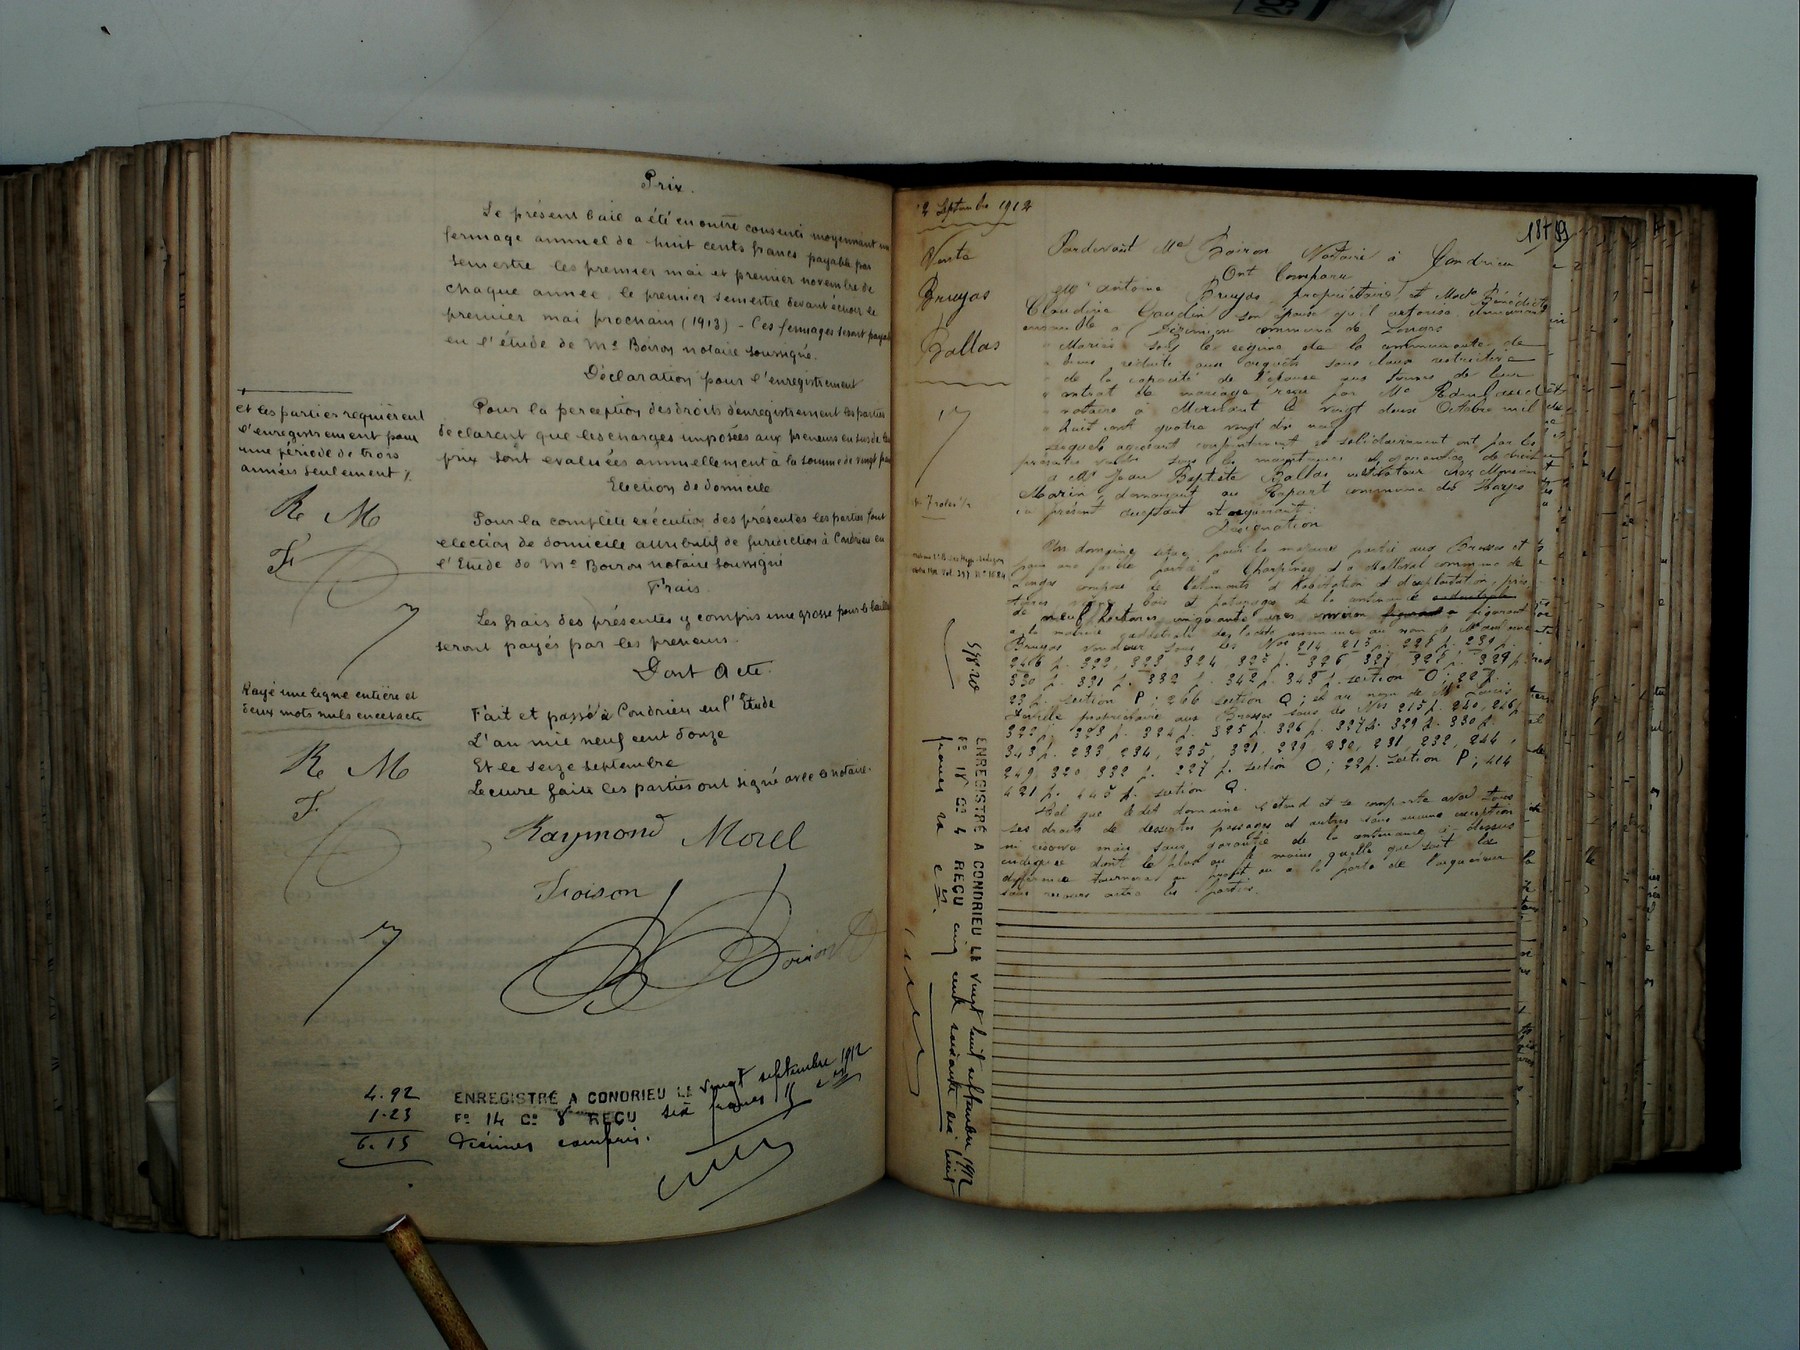 Prix.
Le présent bail a été en outre consenti moyennant un
fermage annuel de huit cents francs payable par
semestre les premier mai et premier novembre de
chaque année, le premier semestre devant échoir le
premier mai prochain (1913) - Ces fermages seront payés
en l'étude de Me Boiron notaire soussigné.
Déclaration pour l'enregistrement
Pour la perception des droits d'enregistrement les parties
déclarent que les charges imposées aux preneurs en sus de
prix sont evaluées annuellement à la somme de vingt
Election de domicile
Pour la complète exécution des présentes les parties font
election de domicile attributif de juridiction à Condrieu en
l'Etude de Me Boiron notaire soussigné
Frais.
Les frais des présentes y compris une grosse pour le bailleur
seront payés par les preneurs.
Dont Acte
Fait et passé à Condrieu en l'Etude
L'an mil neuf cent douze
Et le seize septembre
Lecture faite les parties ont signé avec le notaire.
et les parties requièrent
l'enregistrement pour
une période de trois
années seulement
R M
F
Rayé une ligne entière et
deux mots nuls
R M
F
Raymond Morel
Froison
Boiron
4.92
1.23
6.15
ENREGISTRÉ A CONDRIEU LE vingt septembre 1912
F° 14 C° 8 REÇU six francs 15
décimes compris.
12 Septembre 1912
1849
Vente
Bruyas
Ballas
Pardevant Me Boiron Notaire à Condrieu
Ont Comparu
Mr Antoine Bruyas propriétaire et Made Bénédicte
Claudine Gaudin son épouse qu'il autorise demeurant
ensemble à commune de Longes
Mariés sous le régime de la communauté de
biens réduite aux acquêts sous
de la capacité de l'épouse aux termes de leur
contrat de mariage reçu par Me
notaire à le vingt deux Octobre mil
huit cent quatre vingt dix neuf
Lesquels agissant conjointement et solidairement ont par les
présentes vendu sous les garanties de droit
à Mr Jean Baptiste Ballas chez Monsieur
Marin demeurant au commune des Hayes
ici présent acceptant et acquérant:
Désignation
Un domaine situé pour la majeure partie aux Brosses et
pour une faible partie à et à commune de
Longes composé de bâtiments d'habitation et d'exploitation, prés
terres bois et paturages de la contenance
de neuf hectares cinquante ares environ figurant
à la matrice cadastrale de ladite commune au nom de
Bruyas vendeur sous les Nos 214 215 p. 225 p. 231 p.
246 p. 322, 323 324 325 p. 326 327 328 p. 329 p.
330 p. 331 p. 332 p. 342 p. 343 p. section O; 22 p.
23 p. section P; 266 section Q; et au nom de Mr
propriétaire aux Brosses sous les Nos 215 p. 240, 246 p.
322 p. 323 p. 324 p. 325 p. 326 p. 327 p. 329 p. 330 p.
343 p. 233 234, 235, 321, 229 230, 231, 232, 244,
249 320 332 p. 227 p. section O; 22 p. section P; 414
421 p. 445 p. section Q.
Tel que ledit domaine s'étend et se comporte avec tous
ses droits de dessertes passages et autres sans aucune exception
ni réserve mais sans garantie de la contenance ci-dessus
indiquée dont le plus ou le moins quelle que soit la
différence tournera au profit ou à la perte de l'acquéreur
sans recours entre les parties.
ENREGISTRÉ A CONDRIEU LE vingt huit septembre 1912
F° 18 C° 4 REÇU cinq cent soixante six huit
francs 20 c